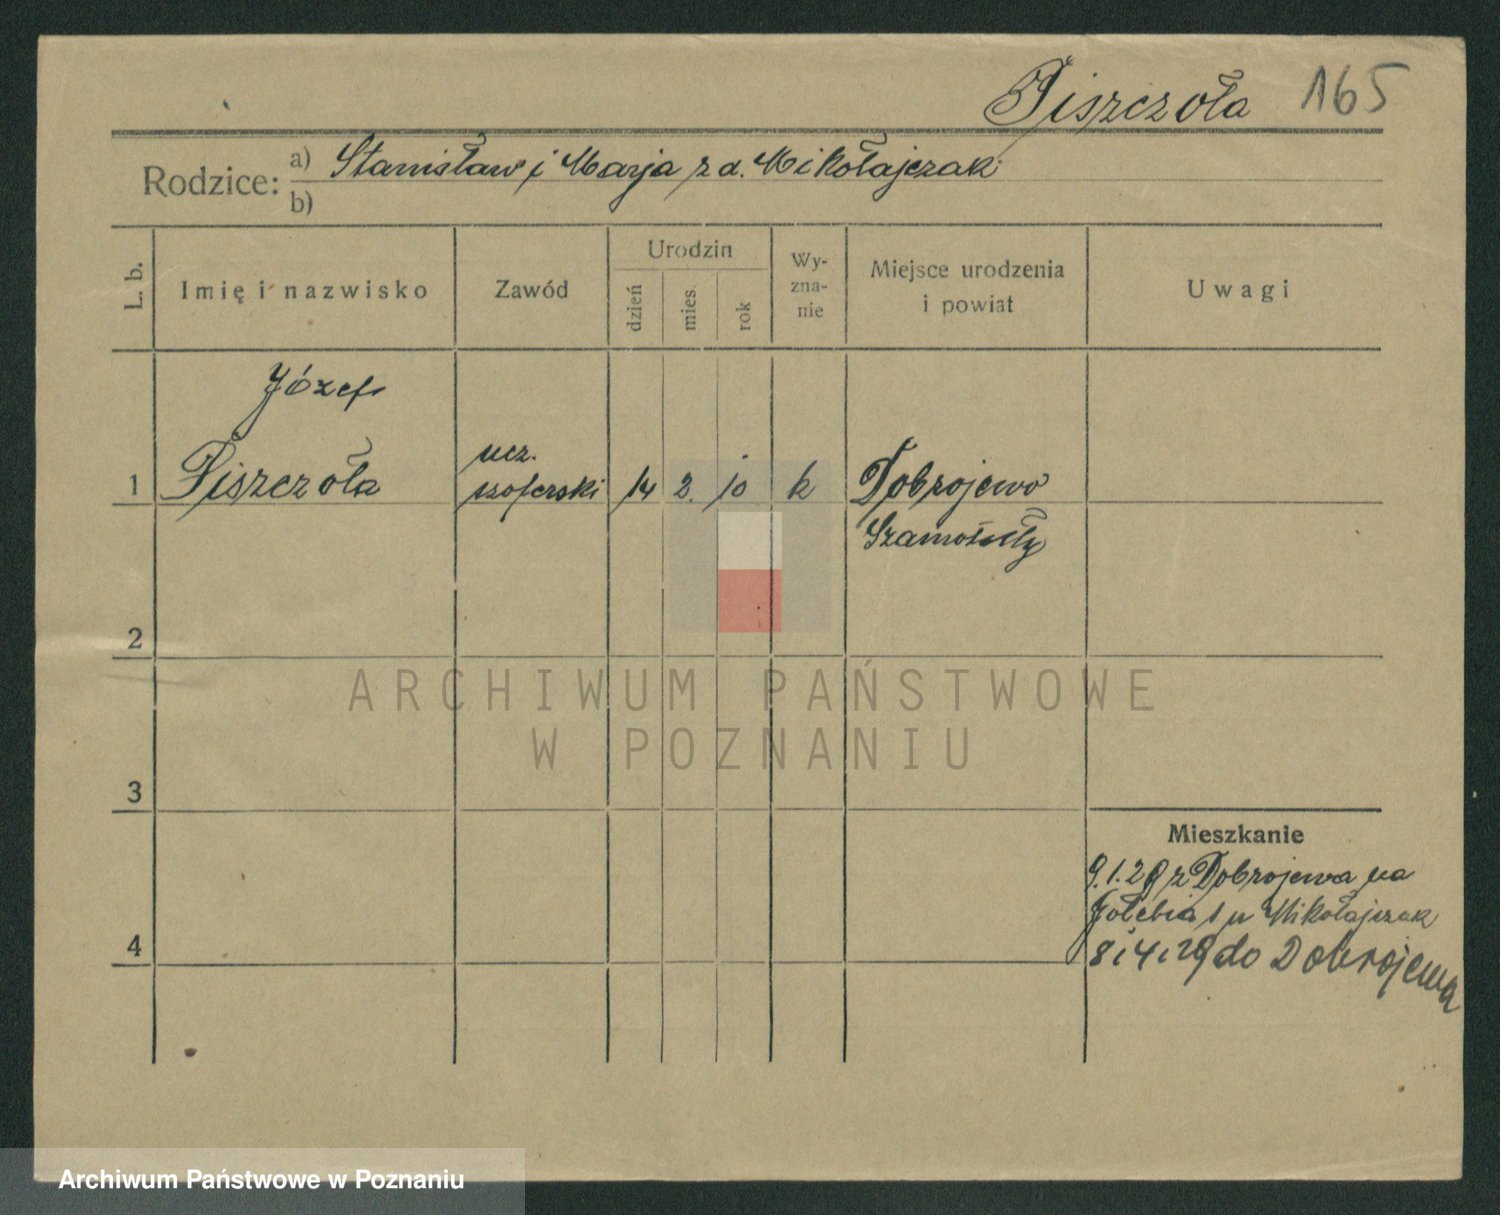 Piszczoła 165
Rodzice: a) Stanisław i Marja z d. Mikołajczak
b)
L. b. Imię i nazwisko Zawód Urodzin dzień mies. rok Wy-zna-nie Miejsce urodzenia i powiat Uwagi
Józef
1 Piszczoła ucz. szoferski 14 2. 10 k Dobrojewo
Szamotuły
2
3
Mieszkanie
9.1.29 z Dobrojewa na
Gołębia 1 u Mikołajczak
4 8 i 4 i 29 do Dobrojewa
ARCHIWUM PAŃSTWOWE
W POZNANIU
Archiwum Państwowe w Poznaniu